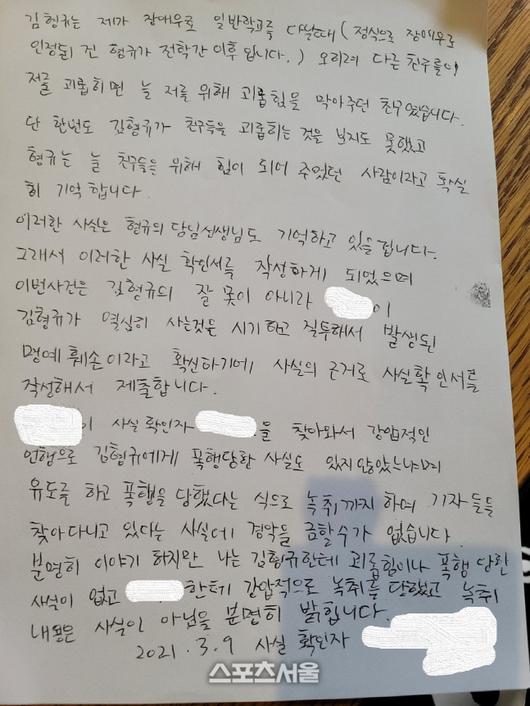 김형규는 제가 장애우로 일반학교를 다닐때 (정식으로 장애우로
인정된 건 형규가 전학간 이후 입니다.) 오히려 다른 친구들이
저를 괴롭히면 늘 저를 위해 괴롭힘을 막아주던 친구였습니다.
단 한번도 김형규가 친구들을 괴롭히는 것을 보지도 못했고
형규는 늘 친구들을 위해 힘이 되어 주었던 사람이라고 확실
히 기억합니다.
이러한 사실은 형규의 담임선생님도 기억하고 있을겁니다.
그래서 이러한 사실 확인서를 작성하게 되었으며
이번사건은 김형규의 잘못이 아니라 이
김형규가 열심히 사는것을 시기하고 질투해서 발생된
명예훼손이라고 확신하기에 사실의 근거로 사실확인서를
작성해서 제출합니다.
이 사실확인자 을 찾아와서 강압적인
언행으로 김형규에게 폭행당한 사실도 있지않았느냐며
유도를 하고 폭행을 당했다는 식으로 녹취까지 하며 기자들을
찾아다니고 있다는 사실에 경악을 금할수가 없습니다.
분명히 이야기 하지만 나는 김형규한테 괴롭힘이나 폭행 당한
사실이 없고 한테 강압적으로 녹취를 당했고 녹취
내용은 사실이 아님을 분명히 밝힙니다.
2021. 3. 9 사실 확인자
스포츠서울